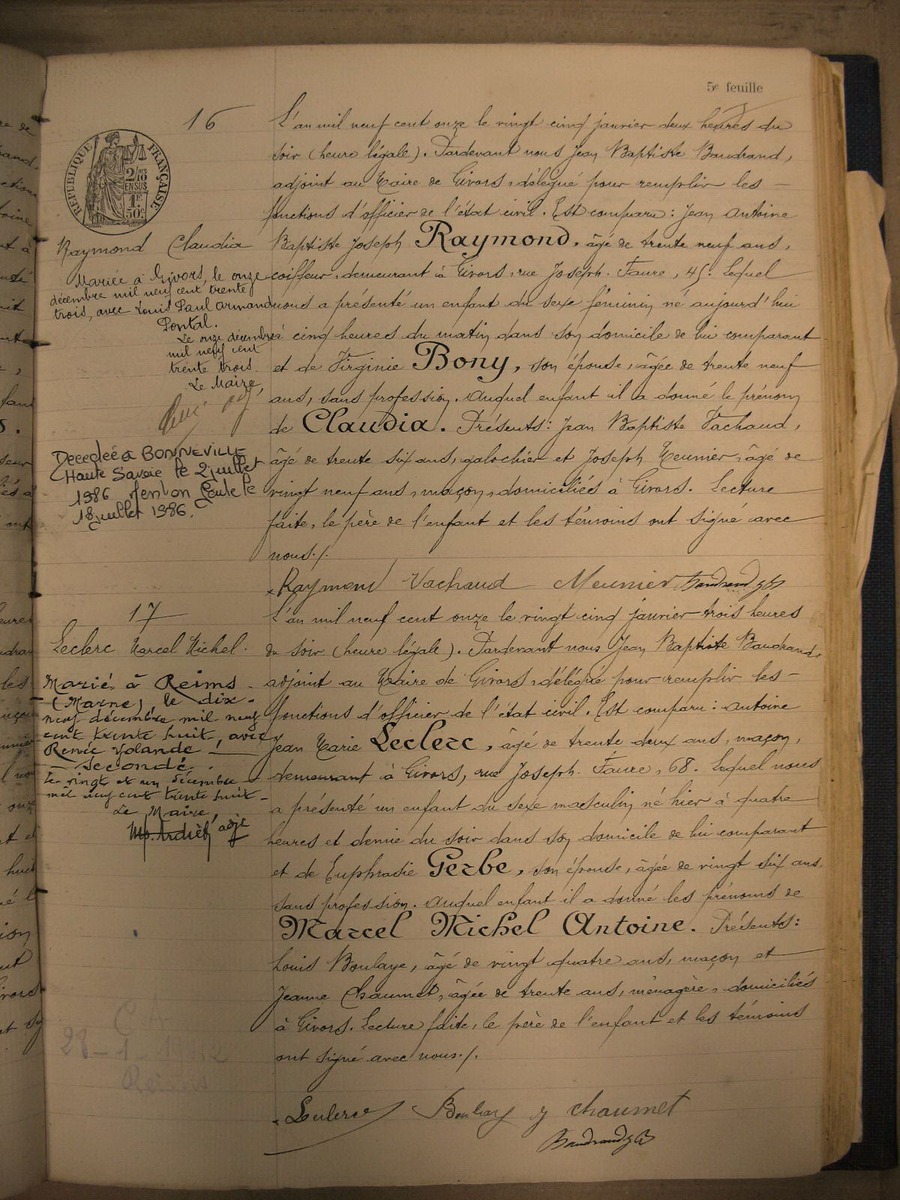 5e feuille
16
RÉPUBLIQUE FRANÇAISE
2/10 EN SUS
1F 50c
Raymond Claudia
Mariée à Givors, le onze
décembre mil neuf cent trente
trois, avec Louis Paul Armand
Pontal.
Le onze décembre
mil neuf cent
trente trois.
Le Maire,
Decedée à BONNEVILLE
Haute Savoie le 2 juillet
1986 Mention le
18 juillet 1986.
L'an mil neuf cent onze le vingt cinq janvier deux heures du
soir (heure légale). Pardevant nous Jean Baptiste Baudrand,
adjoint au Maire de Givors, délégué pour remplir les —
fonctions d'officier de l'état civil. Est comparu: Jean Antoine
Baptiste Joseph Raymond, âgé de trente neuf ans,
coiffeur, demeurant à Givors, rue Joseph-Faure, 45. Lequel
nous a présenté un enfant du sexe féminin né aujourd'hui
à cinq heures du matin dans son domicile de lui comparant
et de Virginie Bony, son épouse, âgée de trente neuf
ans, sans profession. Auquel enfant il a donné le prénom
de Claudia. Présents: Jean Baptiste Vachaud,
âgé de trente six ans, galochier et Joseph Meunier, âgé de
vingt neuf ans, maçon, domiciliés à Givors. Lecture
faite, le père de l'enfant et les témoins ont signé avec
nous./.
Raymond Vachaud Meunier Baudrand JB
17
Leclerc Marcel Michel.
Marié à Reims
(Marne), le dix-
neuf décembre mil neuf
cent trente huit, avec
Renée Yolande
Secondé.
Le vingt et un décembre
mil neuf cent trente huit
Le Maire
adjt
L'an mil neuf cent onze le vingt cinq janvier trois heures
du soir (heure légale). Pardevant nous Jean Baptiste Baudrand,
adjoint au Maire de Givors, délégué pour remplir les —
fonctions d'officier de l'état civil. Est comparu: Antoine
Jean Marie Leclerc, âgé de trente deux ans, maçon,
demeurant à Givors, rue Joseph-Faure, 68. Lequel nous
a présenté un enfant du sexe masculin né hier à quatre
heures et demie du soir dans son domicile de lui comparant
et de Euphrasie Gerbe, son épouse, âgée de vingt six ans,
sans profession. Auquel enfant il a donné les prénoms de
Marcel Michel Antoine. Présents:
Louis Boulaye, âgé de vingt quatre ans, maçon et
Jeanne Chaumet, âgée de trente ans, ménagère, domiciliés
à Givors. Lecture faite, le père de l'enfant et les témoins
ont signé avec nous./.
C.A
Reims
Leclerc Boulay J Chaumet
Baudrand JB